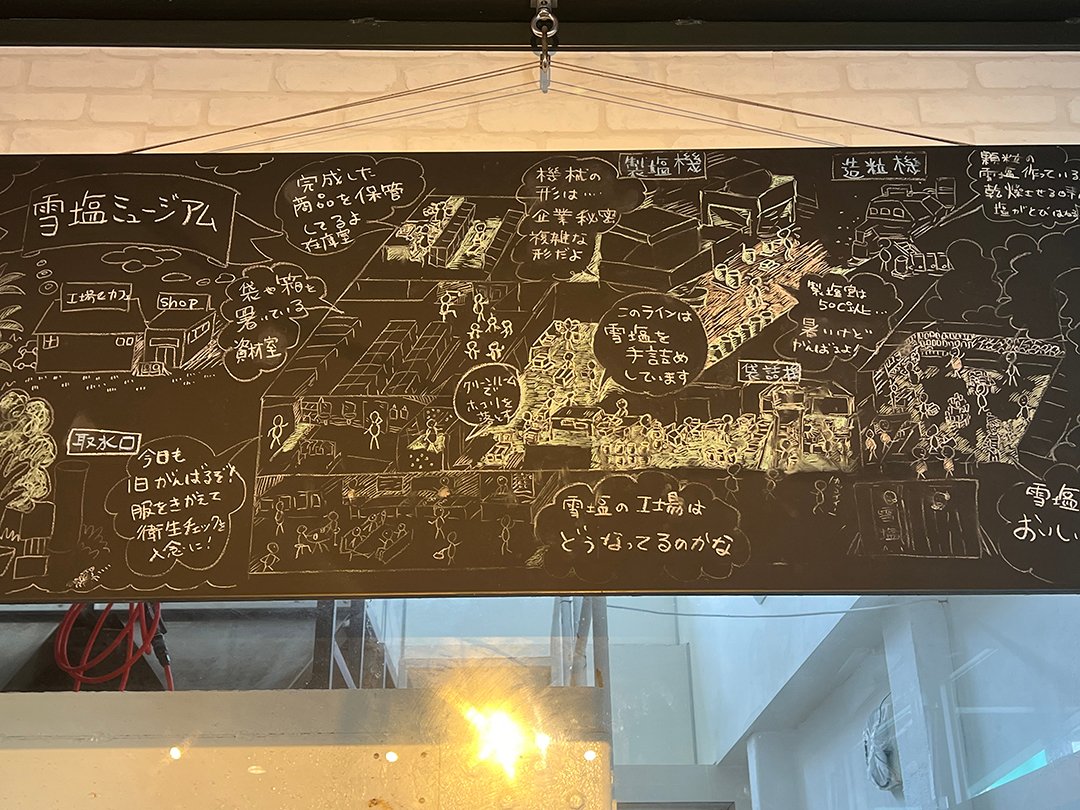 雪塩ミュージアム
工場セカフェ
shop
取水口
今日も
1日がんばるぞ!
服をきがえて
衛生チェックを
入念に!
完成した
商品を保管
してるよ
在庫室
袋や箱を
置いている
資材室
機械の
形は…
企業秘密
複雑な
形だよ
製塩機
このラインは
雪塩を
手詰め
しています
クリーンルーム
で
ホコリを
袋詰機
雪塩の工場は
どうなってるのかな
造粒機
製塩室は
50℃以上…
暑いけど
がんばるよ!
顆粒の
雪塩作っている
乾燥させる
塩がとびはね
雪塩
おいし